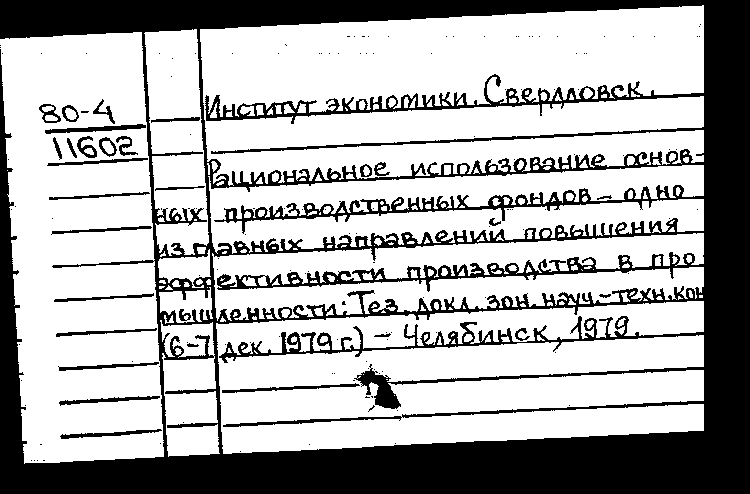 80-4
11602
Институт экономики. Свердловск.
Рациональное использование основ-
ных производственных фондов – одно
из главных направлений повышения
эффективности производства в про-
мышленности: Тез. докл. зон. науч.-техн. кон
(6-7 дек. 1979 г.) – Челябинск, 1979.